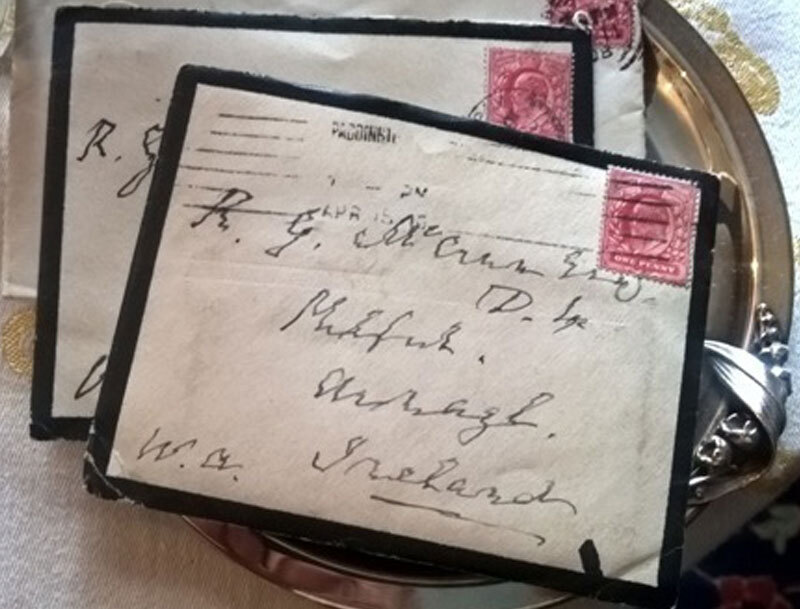 PADDINGT
APR 15
ONE PENNY
R. G. McCrum Esq.
D. L.
Milford.
Armagh.
W.A. Ireland
R. G